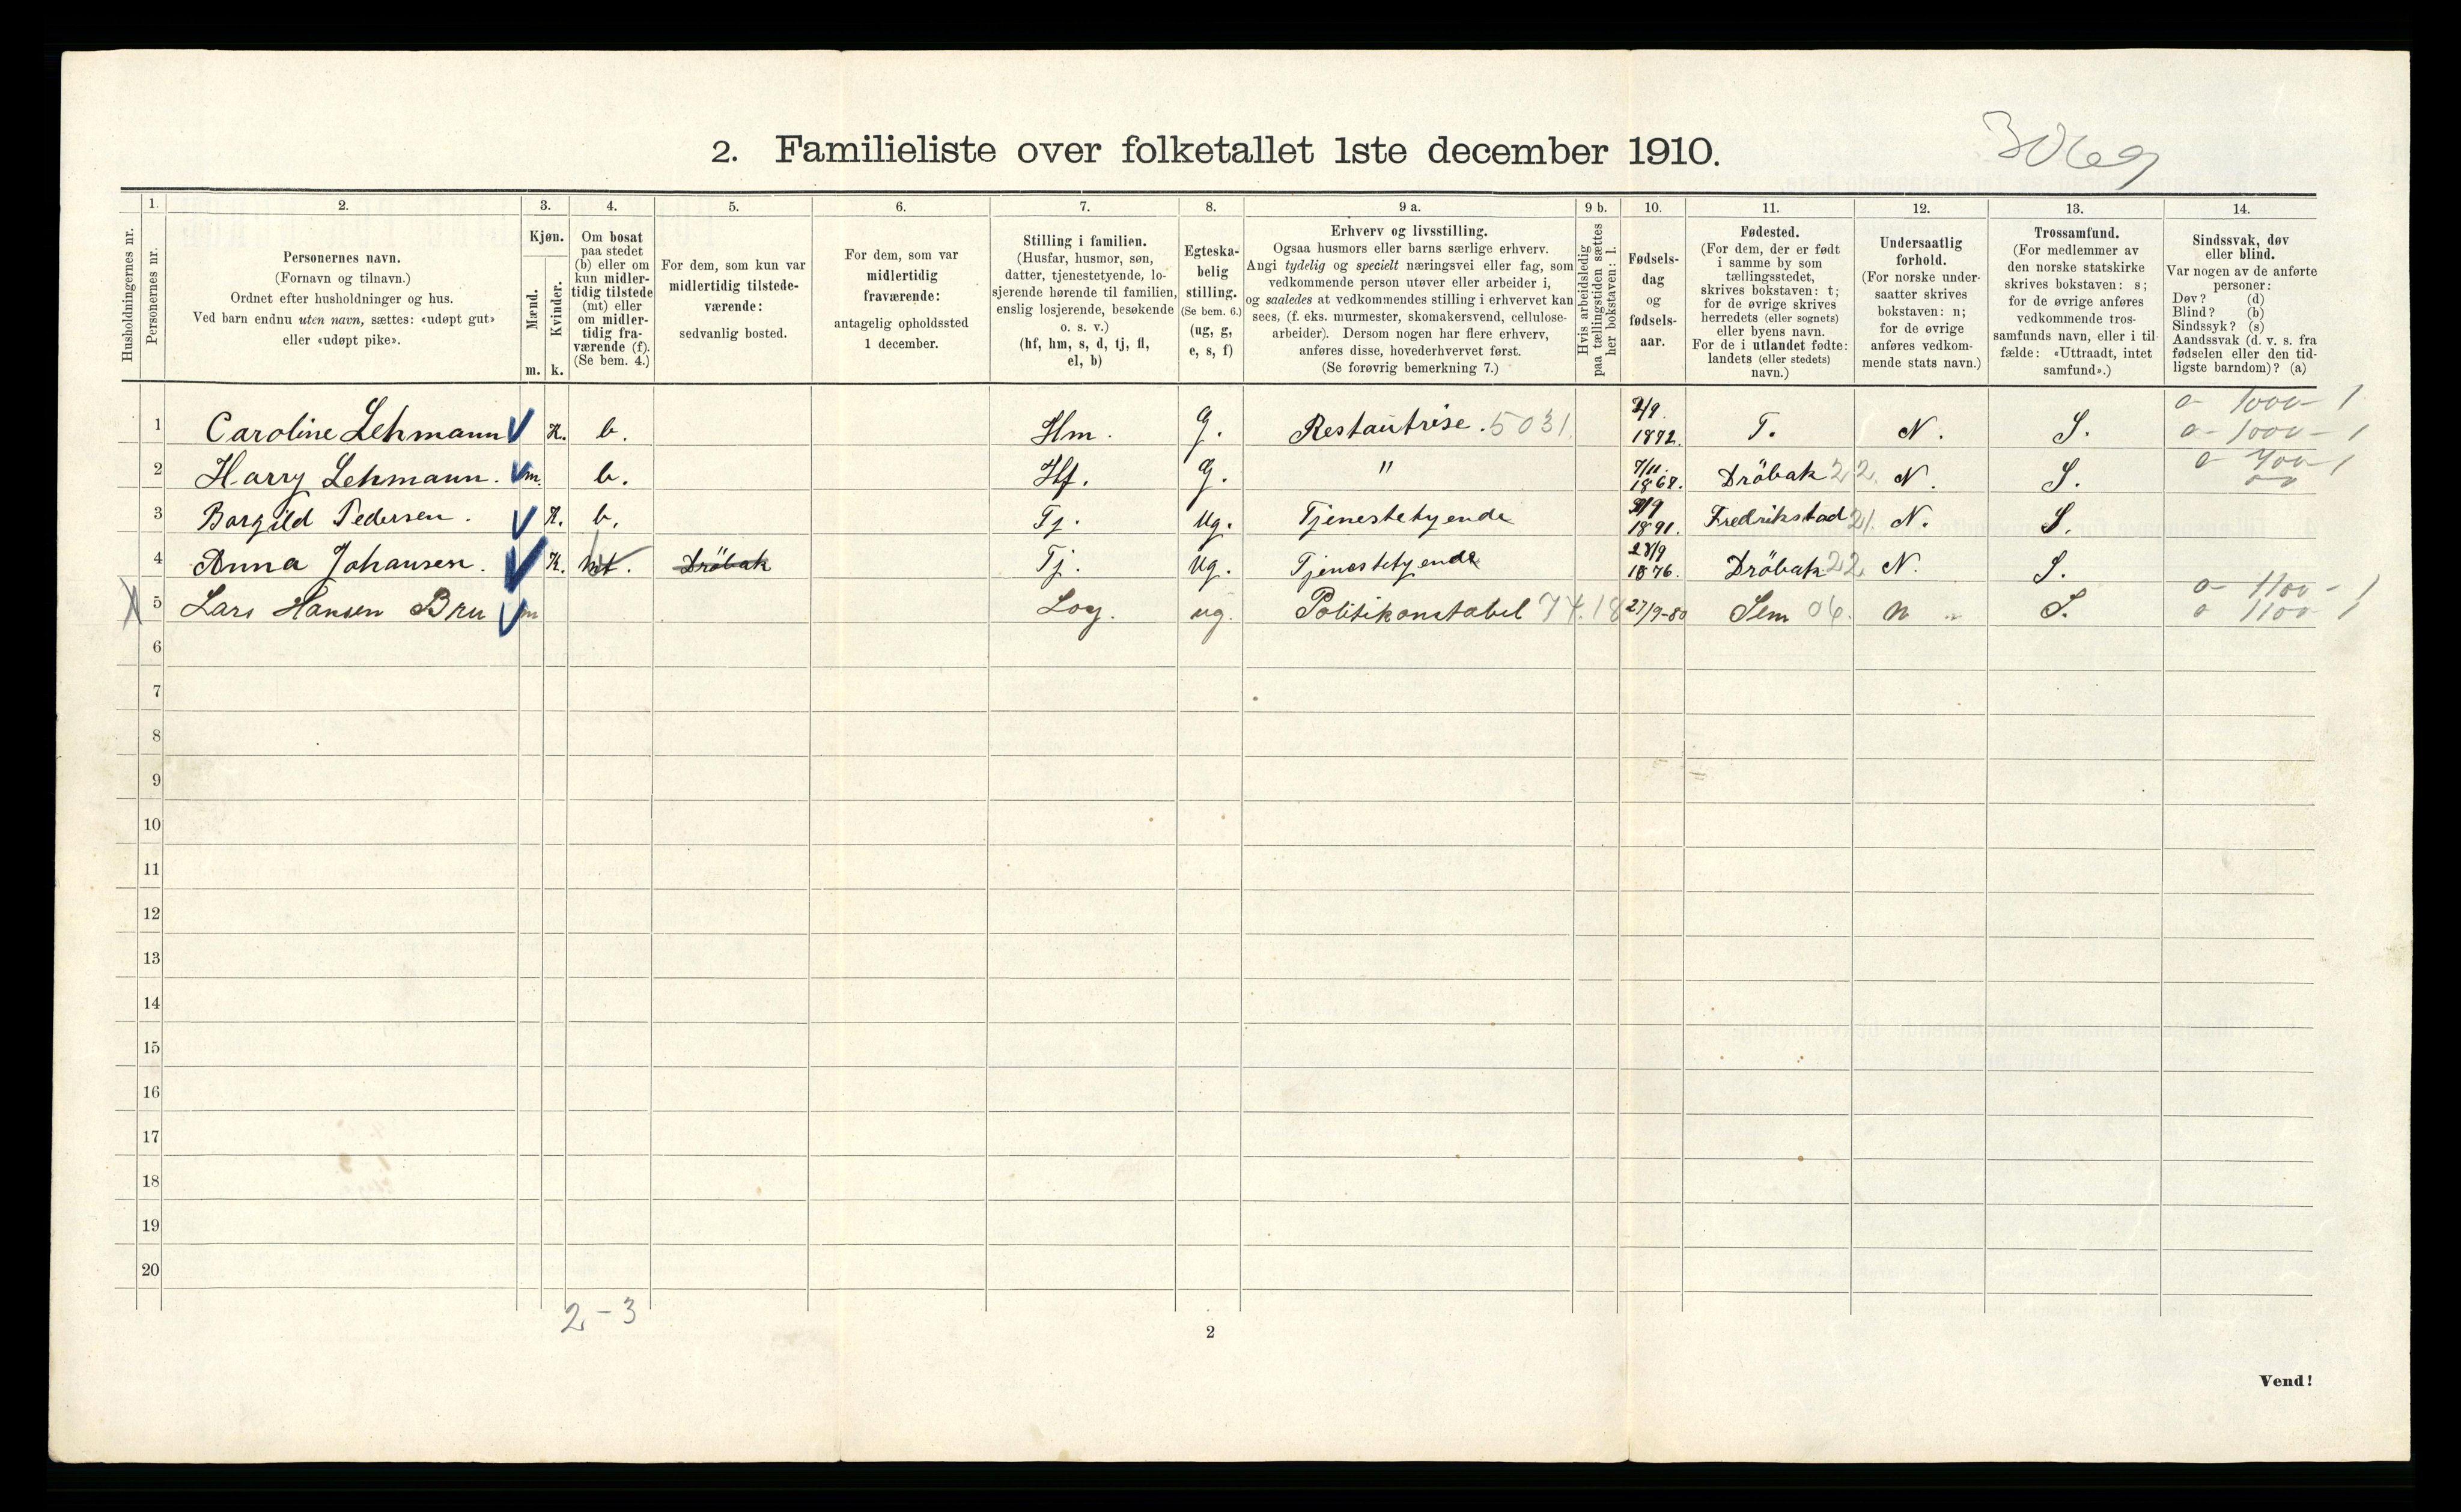 3069
2. Familieliste over folketallet 1ste december 1910.
1. 2. 3. 4. 5. 6. 7. 8. 9 a. 9 b. 10. 11. 12. 13. 14.
Husholdningernes nr.
Personernes nr.
Personernes navn.
(Fornavn og tilnavn.)
Ordnet efter husholdninger og hus.
Ved barn endnu uten navn, sættes: «udøpt gut»
eller «udøpt pike».
Kjøn.
Mænd.
Kvinder.
m. k.
Om bosat
paa stedet
(b) eller om
kun midler-
tidig tilstede
(mt) eller
om midler-
tidig fra-
værende (f).
(Se bem. 4.)
For dem, som kun var
midlertidig tilstede-
værende:
sedvanlig bosted.
For dem, som var
midlertidig
fraværende:
antagelig opholdssted
1 december.
Stilling i familien.
(Husfar, husmor, søn,
datter, tjenestetyende, lo-
sjerende hørende til familien,
enslig losjerende, besøkende
o. s. v.)
(hf, hm, s, d, tj, fl,
el, b)
Egteska-
belig
stilling.
(Se bem. 6.)
(ug, g,
e, s, f)
Erhverv og livsstilling.
Ogsaa husmors eller barns særlige erhverv.
Angi tydelig og specielt næringsvei eller fag, som
vedkommende person utøver eller arbeider i,
og saaledes at vedkommendes stilling i erhvervet kan
sees, (f. eks. murmester, skomakersvend, cellulose-
arbeider). Dersom nogen har flere erhverv,
anføres disse, hovederhvervet først.
(Se forøvrig bemerkning 7.)
Hvis arbeidsledig
paa tællingstiden sættes
her bokstaven: l.
Fødsels-
dag
og
fødsels-
aar.
Fødested.
(For dem, der er født
i samme by som
tællingsstedet,
skrives bokstaven: t;
for de øvrige skrives
herredets (eller sognets)
eller byens navn.
For de i utlandet fødte:
landets (eller stedets)
navn.)
Undersaatlig
forhold.
(For norske under-
saatter skrives
bokstaven: n;
for de øvrige
anføres vedkom-
mende stats navn.)
Trossamfund.
(For medlemmer av
den norske statskirke
skrives bokstaven: s;
for de øvrige anføres
vedkommende tros-
samfunds navn, eller i til-
fælde: «Uttraadt, intet
samfund».)
Sindssvak, døv
eller blind.
Var nogen av de anførte
personer:
Døv? (d)
Blind? (b)
Sindssyk? (s)
Aandssvak (d. v. s. fra
fødselen eller den tid-
ligste barndom)? (a)
0 - 1000 - 1
1 Caroline Lehmann K. b. Hm. G. Restautrise. 5031. 1872. T. N. S. 0 - 1000 - 1
2 Harry Lehmann. m. b. Hf. G. " 7/11. 1867. Dröbak 22. N. S.
3 Borgild Pedersen. K. b. Tj. Ug. Tjenestetyende 1891. Fredrikstad 21. N. S.
4 Anna Johansen. K. mt. Dröbak Tj. Ug. Tjenestetyende 28/9 1876. Dröbak 22 N. S.
0 - 1100 - 1
5 Lars Hansen Bru m Log. ug. Politikonstabel 74.18 27/9-80 Sem 06. n S. 0 1100 1
6
7
8
9
10
11
12
13
14
15
16
17
18
19
20
2 - 3
2
Vend!